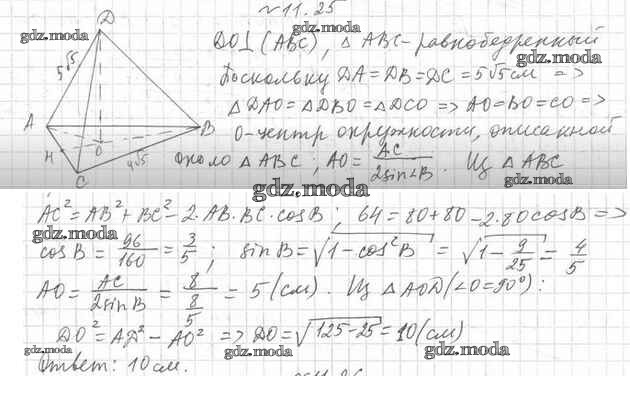 №11.25
gdz.moda
gdz.moda
D
DO⊥(ABC), △ABC-равнобедренный
gdz.moda
5√5
Поскольку DA=DB=DC=5√5см =>
△DAO=△DBO=△DCO => AO=BO=CO =>
A
B
O-центр окружности, описанной
H
O
C
4√5
около △ABC; AO= AC/2sin∠B. Из △ABC
gdz.moda
AC²=AB²+BC²-2·AB·BC·cosB; 64=80+80-2·80cosB =>
gdz.moda
cosB= 96/160 = 3/5; sinB=√1-cos²B = √1- 9/25 = 4/5
AO= AC/2sinB = 8/(8/5) = 5(см). Из △AOD(∠O=90°):
gdz.moda
DO²=AD²-AO² => DO=√125-25=10(см)
gdz.moda
gdz.moda
gdz.moda
Ответ: 10см.